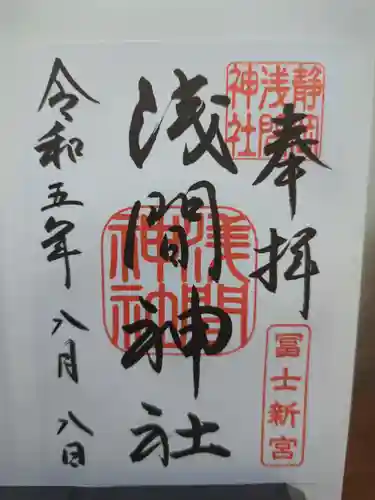 奉拝
静岡浅間神社
冨士新宮
浅間神社
浅間神社
令和五年 八月 八日